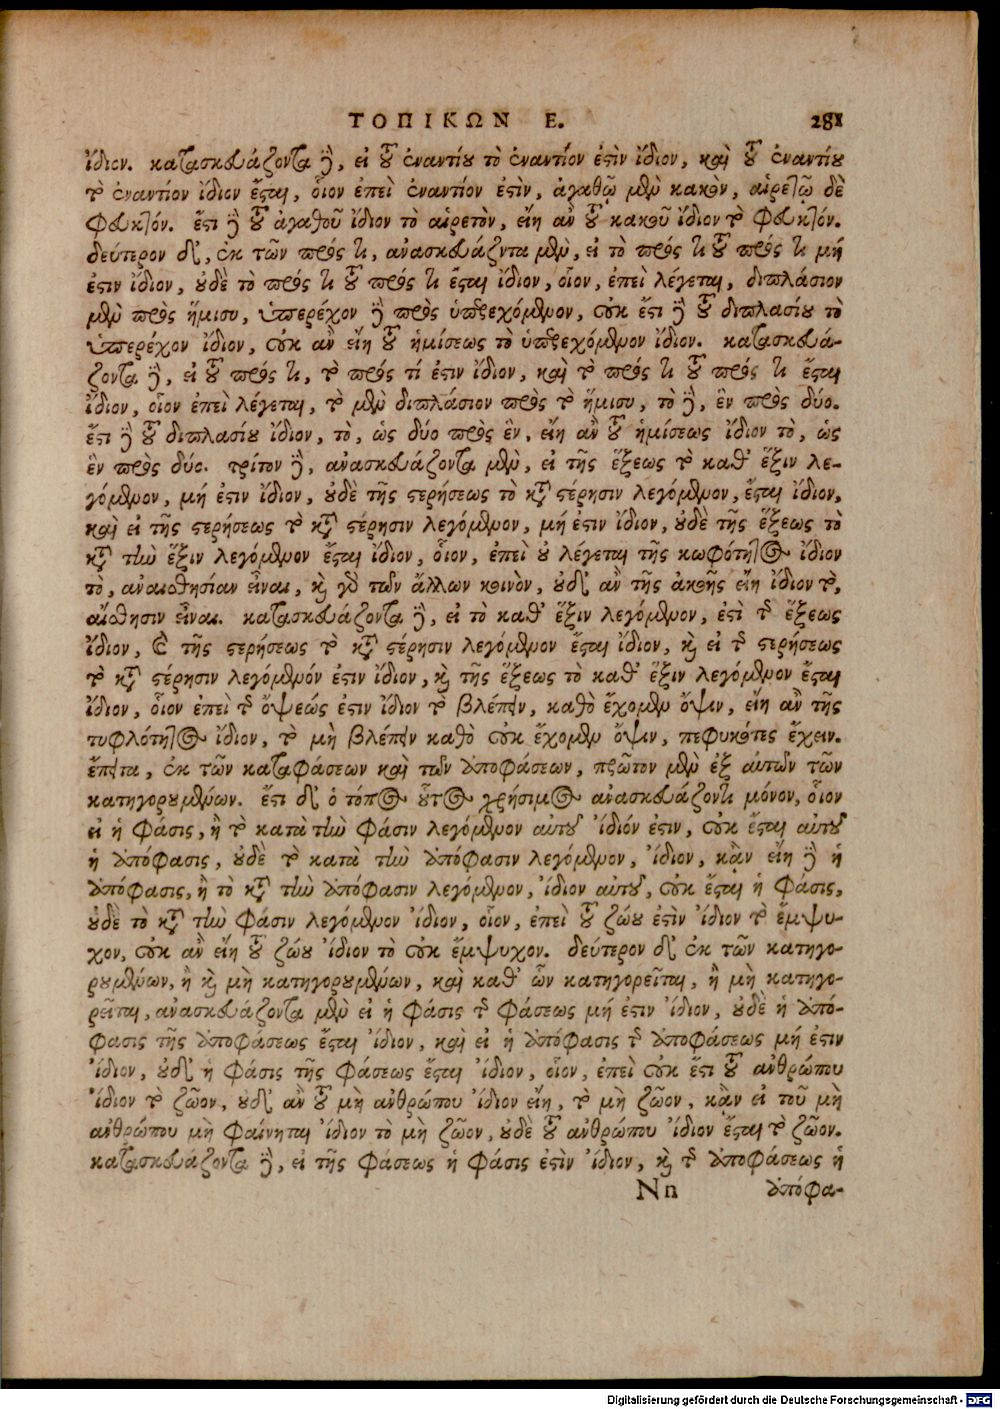 ΤΟΠΙΚΩΝ Ε. 281
ἴδιον. κατασκευάζοντα δὲ, εἰ τοῦ ἐναντίου τὸ ἐναντίον ἐστὶν ἴδιον, καὶ τοῦ ἐναντίου
τὸ ἐναντίον ἴδιον ἔσται, οἷον ἐπεὶ ἐναντίον ἐστὶν, ἀγαθῷ μὲν κακὸν, αἱρετῷ δὲ
φευκτόν. ἔστι δὲ τοῦ ἀγαθοῦ ἴδιον τὸ αἱρετὸν, εἴη ἂν τοῦ κακοῦ ἴδιον τὸ φευκτόν.
δεύτερον δ', ἐκ τῶν πρός τι, ἀνασκευάζοντα μὲν, εἰ τὸ πρός τι τοῦ πρός τι μή
ἐστιν ἴδιον, οὐδὲ τὸ πρός τι τοῦ πρός τι ἔσται ἴδιον, οἷον, ἐπεὶ λέγεται, διπλάσιον
μὲν πρὸς ἥμισυ, ὑπερέχον δὲ πρὸς ὑπερεχόμενον, οὐκ ἔστι δὲ τοῦ διπλασίου τὸ
ὑπερέχον ἴδιον, οὐκ ἂν εἴη τοῦ ἡμίσεως τὸ ὑπερεχόμενον ἴδιον. κατασκευά-
ζοντα δὲ, εἰ τοῦ πρός τι, τὸ πρός τί ἐστιν ἴδιον, καὶ τὸ πρός τι τοῦ πρός τι ἔσται
ἴδιον, οἷον ἐπεὶ λέγεται, τὸ μὲν διπλάσιον πρὸς τὸ ἥμισυ, τὸ δὲ, ἓν πρὸς δύο.
ἔστι δὲ τοῦ διπλασίου ἴδιον, τὸ, ὡς δύο πρὸς ἓν, εἴη ἂν τοῦ ἡμίσεως ἴδιον τὸ, ὡς
ἓν πρὸς δύο. τρίτον δὲ, ἀνασκευάζοντα μὲν, εἰ τῆς ἕξεως τὸ καθ' ἕξιν λε-
γόμενον, μή ἐστιν ἴδιον, οὐδὲ τῆς στερήσεως τὸ κατὰ στέρησιν λεγόμενον, ἔσται ἴδιον,
καὶ εἰ τῆς στερήσεως τὸ κατὰ στέρησιν λεγόμενον, μή ἐστιν ἴδιον, οὐδὲ τῆς ἕξεως τὸ
κατὰ τὴν ἕξιν λεγόμενον ἔσται ἴδιον, οἷον, ἐπεὶ οὐ λέγεται τῆς κωφότητος ἴδιον
τὸ, ἀναισθησίαν εἶναι, καὶ γὰρ τῶν ἄλλων κοινὸν, οὐδ' ἂν τῆς ἀκοῆς εἴη ἴδιον τὸ,
αἴσθησιν εἶναι. κατασκευάζοντα δὲ, εἰ τὸ καθ' ἕξιν λεγόμενον, ἐστὶ τῆς ἕξεως
ἴδιον, καὶ τῆς στερήσεως τὸ κατὰ στέρησιν λεγόμενον ἔσται ἴδιον, καὶ εἰ τῆς στερήσεως
τὸ κατὰ στέρησιν λεγόμενόν ἐστιν ἴδιον, καὶ τῆς ἕξεως τὸ καθ' ἕξιν λεγόμενον ἔσται
ἴδιον, οἷον ἐπεὶ τῆς ὄψεώς ἐστιν ἴδιον τὸ βλέπειν, καθὸ ἔχομεν ὄψιν, εἴη ἂν τῆς
τυφλότητος ἴδιον, τὸ μὴ βλέπειν καθὸ οὐκ ἔχομεν ὄψιν, πεφυκότες ἔχειν.
ἔπειτα, ἐκ τῶν καταφάσεων καὶ τῶν ἀποφάσεων, πρῶτον μὲν ἐξ αὐτῶν τῶν
κατηγορουμένων. ἔστι δ' ὁ τόπος οὗτος χρήσιμος ἀνασκευάζοντι μόνον, οἷον
εἰ ἡ φάσις, ἢ τὸ κατὰ τὴν φάσιν λεγόμενον αὐτοῦ ἴδιόν ἐστιν, οὐκ ἔσται αὐτοῦ
ἡ ἀπόφασις, οὐδὲ τὸ κατὰ τὴν ἀπόφασιν λεγόμενον, ἴδιον, κἂν εἴη δὲ ἡ
ἀπόφασις, ἢ τὸ κατὰ τὴν ἀπόφασιν λεγόμενον, ἴδιον αὐτοῦ, οὐκ ἔσται ἡ φάσις,
οὐδὲ τὸ κατὰ τὴν φάσιν λεγόμενον ἴδιον, οἷον, ἐπεὶ τοῦ ζώου ἐστὶν ἴδιον τὸ ἔμψυ-
χον, οὐκ ἂν εἴη τοῦ ζώου ἴδιον τὸ οὐκ ἔμψυχον. δεύτερον δ' ἐκ τῶν κατηγο-
ρουμένων, ἢ καὶ μὴ κατηγορουμένων, καὶ καθ' ὧν κατηγορεῖται, ἢ μὴ κατηγο-
ρεῖται, ἀνασκευάζοντα μὲν εἰ ἡ φάσις τῆς φάσεως μή ἐστιν ἴδιον, οὐδὲ ἡ ἀπό-
φασις τῆς ἀποφάσεως ἔσται ἴδιον, καὶ εἰ ἡ ἀπόφασις τῆς ἀποφάσεως μή ἐστιν
ἴδιον, οὐδ' ἡ φάσις τῆς φάσεως ἔσται ἴδιον, οἷον, ἐπεὶ οὐκ ἔστι τοῦ ἀνθρώπου
ἴδιον τὸ ζῶον, οὐδ' ἂν τοῦ μὴ ἀνθρώπου ἴδιον εἴη, τὸ μὴ ζῶον, κἂν εἰ τοῦ μὴ
ἀνθρώπου μὴ φαίνηται ἴδιον τὸ μὴ ζῶον, οὐδὲ τοῦ ἀνθρώπου ἴδιον ἔσται τὸ ζῶον.
κατασκευάζοντα δὲ, εἰ τῆς φάσεως ἡ φάσις ἐστὶν ἴδιον, καὶ τῆς ἀποφάσεως ἡ
Nn ἀπόφα-
Digitalisierung gefördert durch die Deutsche Forschungsgemeinschaft - DFG